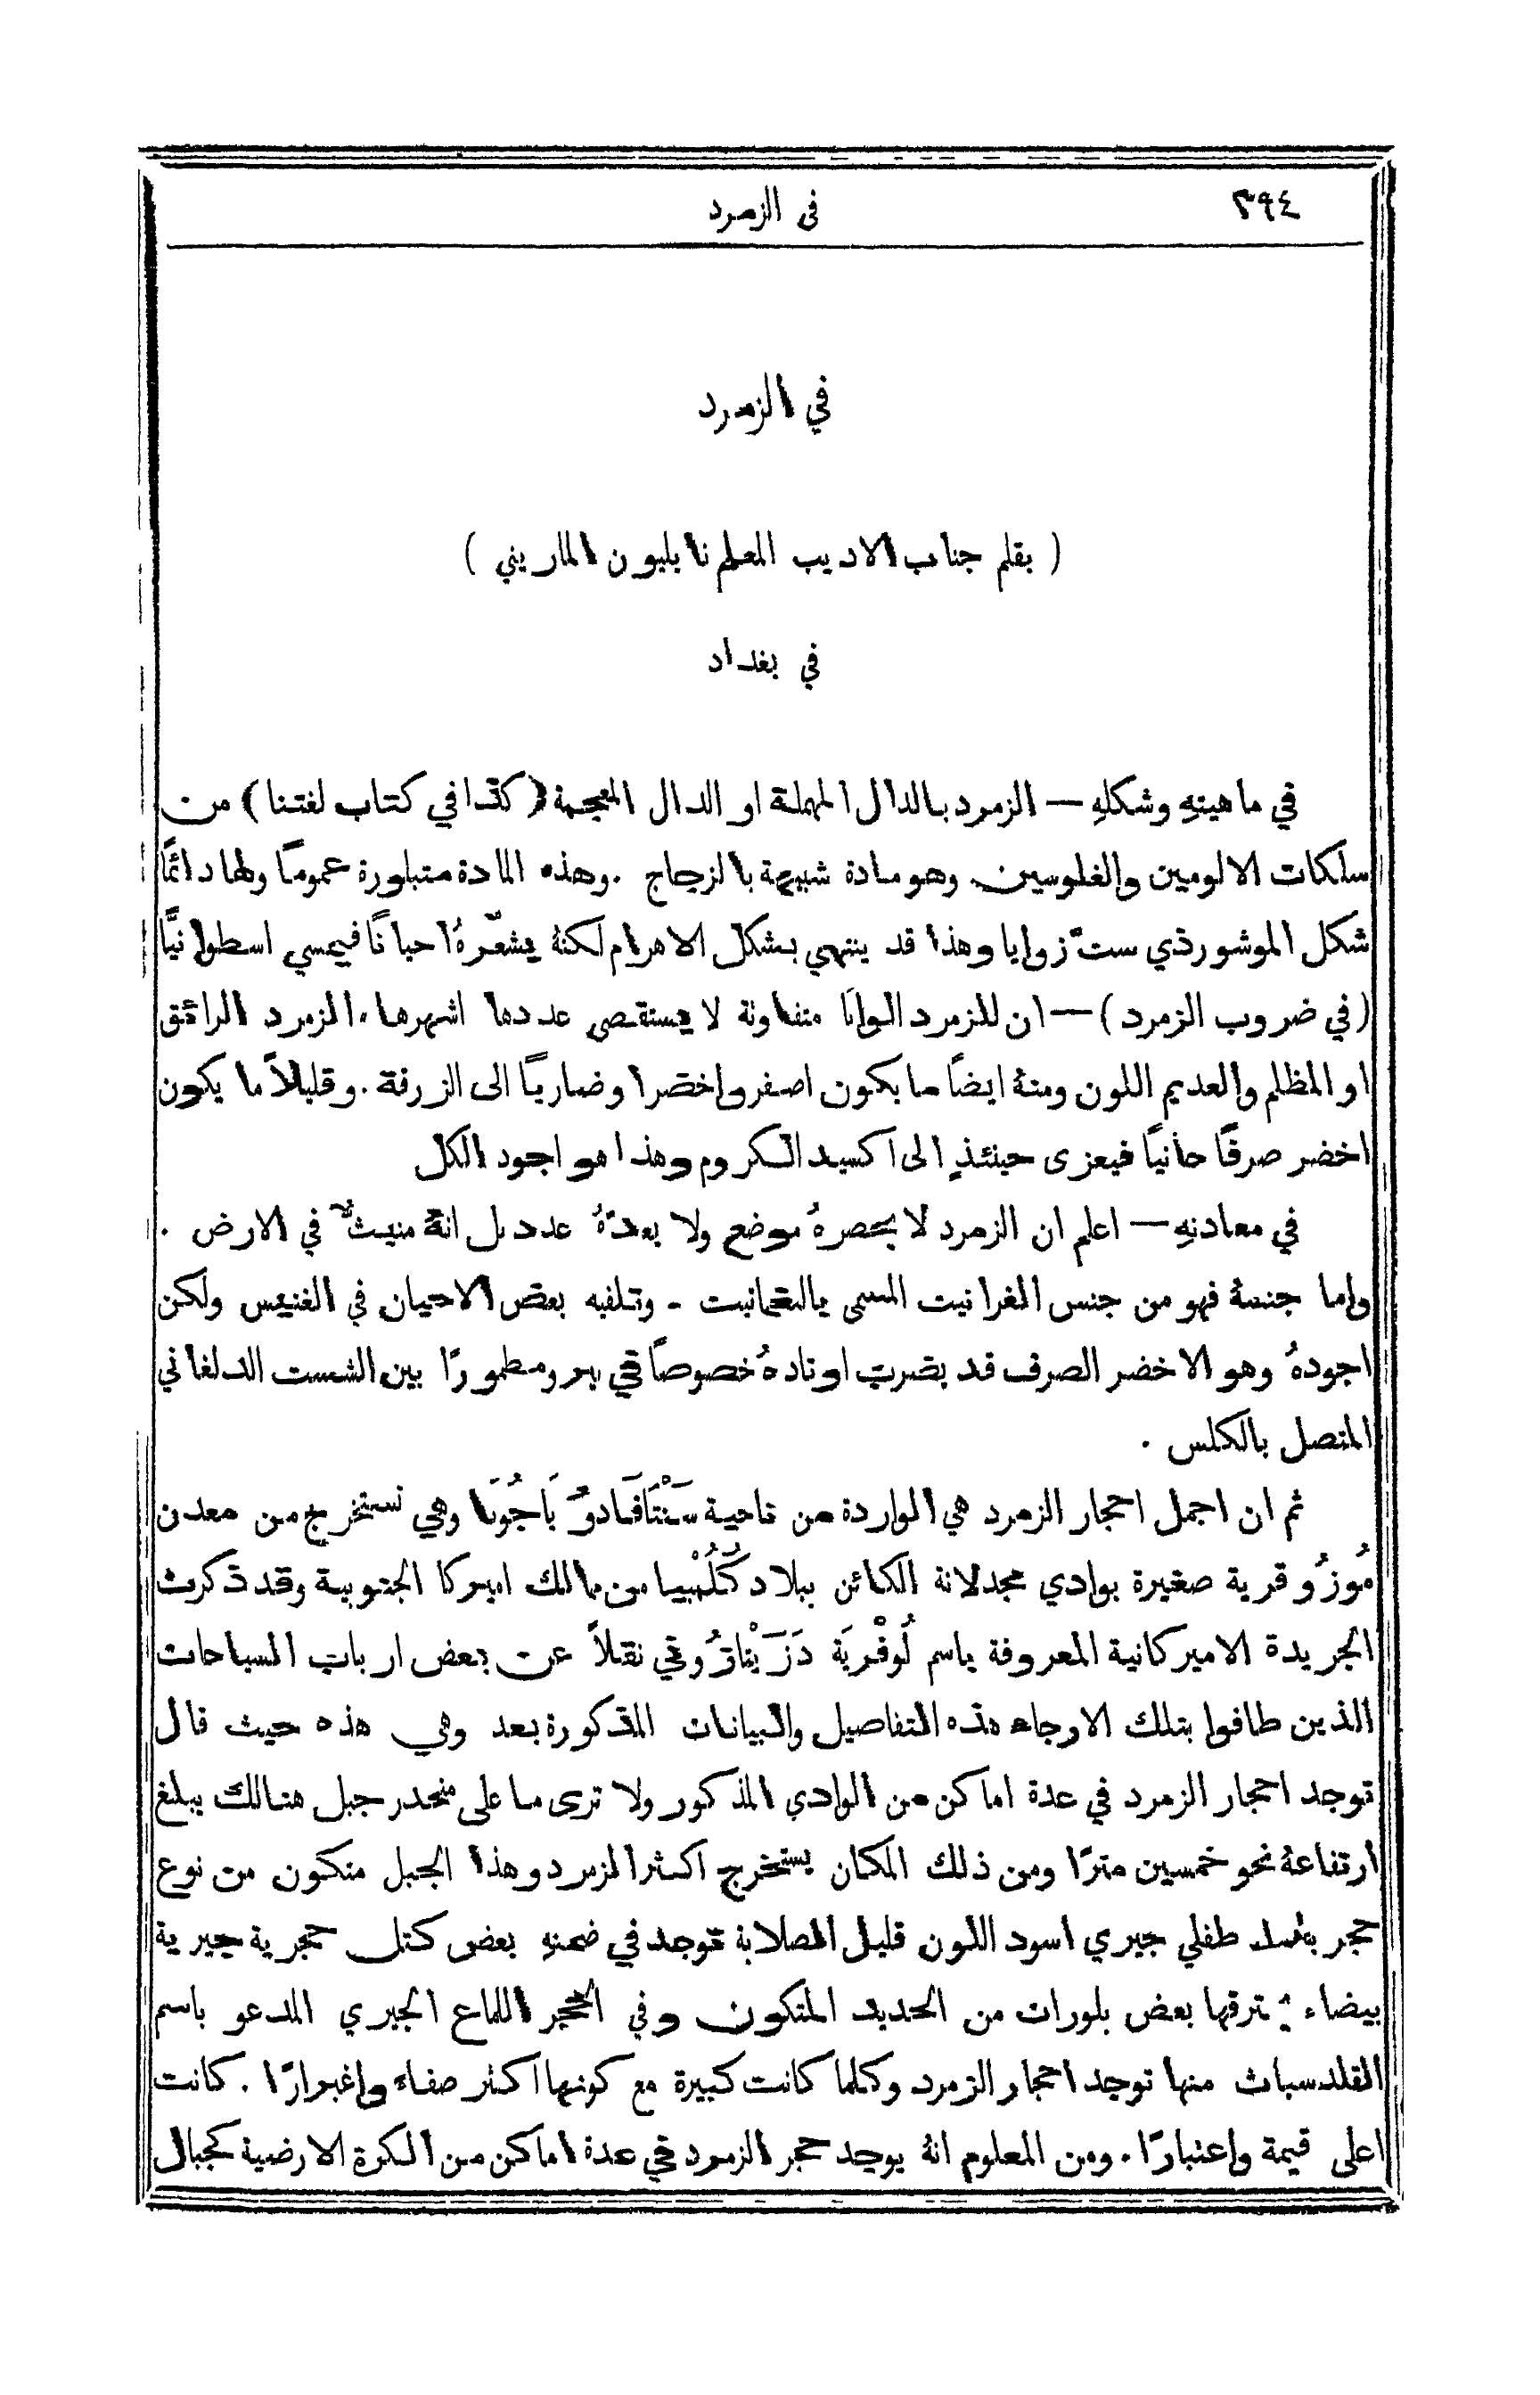 ٣٩٤
في الزمرد
في الزمرد
( بقلم جناب الاديب المعلم نابليون الماريني )
في بغداد
في ماهيتهِ وشكلهِ — الزمرد بالدال المهملة او الدال المعجمة (كذا في كتاب لغتنا) من
سلكات الالومين والغلوسين وهو مادة شبيهة بالزجاج . وهذه المادة متبلورة عموماً ولها دائماً
شكل الموشور ذي ستّ زوايا وهذا قد ينتهي بشكل الاهرام لكنهُ احيانًا فيمسي اسطوانيًّا
(في ضروب الزمرد) — ان للزمرد الوانًا متفاوتة لا يستقصى عددها اشهرها . الزمرد الرائق
او المظلم والعديم اللون ومنهُ ايضًا ما يكون اصفر واخضر او ضاربًا الى الزرقة . وقليلاً ما يكون
اخضر صرفًا حانيًا فيعزى حينئذٍ الى اكسيد الكروم وهذا هو اجود الكل
في معادنهِ — اعلم ان الزمرد لا يحصرهُ موضع ولا يعدّهُ عدد بل انهُ منبثٌّ في الارض .
واما جنسهُ فهو من جنس الغرانيت المسمى - وتلفيه بعض الاحيان في الغنيس ولكن
اجودهُ وهو الاخضر الصرف قد يضرب اوتادهُ خصوصًا في بيرو مطمورًا بين الشست الدلغاني
المتصل بالكلس .
ثم ان اجمل احجار الزمرد هي الواردة من ناحية سَنْتَافَادُو بَاجُوتَا وهي تستخرج من معدن
مُوزُو قرية صغيرة بوادي مجدلانة الكائن ببلاد كُلُمْبيا من ممالك اميركا الجنوبية وقد ذكرت
الجريدة الاميركانية المعروفة باسم نقلاً عن بعض ارباب السياحات
الذين طافوا بتلك الارجاء هذه التفاصيل والبيانات المذكورة بعد وهي هذه حيث قال
توجد احجار الزمرد في عدة اماكن من الوادي المذكور ولا ترى ما على منحدر جبل هنالك يبلغ
ارتفاعهُ نحو خمسين مترًا ومن ذلك المكان يستخرج اكثر الزمرد وهذا الجبل متكون من نوع
حجر طفلي جيري اسود اللون قليل الصلابة توجد في ضمنهِ بعض كتل حجرية جيرية
بيضاء بعض بلورات من الحديد المتكون وفي الحجر اللماع الجيري المدعو باسم
الفلدسباث منها توجد احجار الزمرد وكلما كانت كبيرة مع كونها اكثر صفاء واغبرارًا . كانت
اعلى قيمة واعتبارًا . ومن المعلوم انهُ يوجد حجر الزمرد في عدة اماكن من الكرة الارضية كجبال